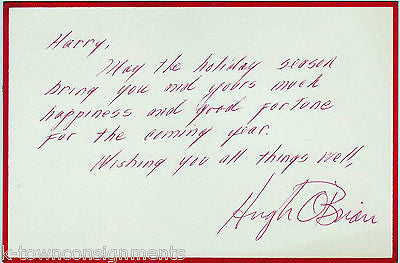 Harry,
May the holiday season
bring you and yours much
happiness and good fortune
for the coming year.
Wishing you all things well,
Hugh O'Brian
k-townconsignments.com